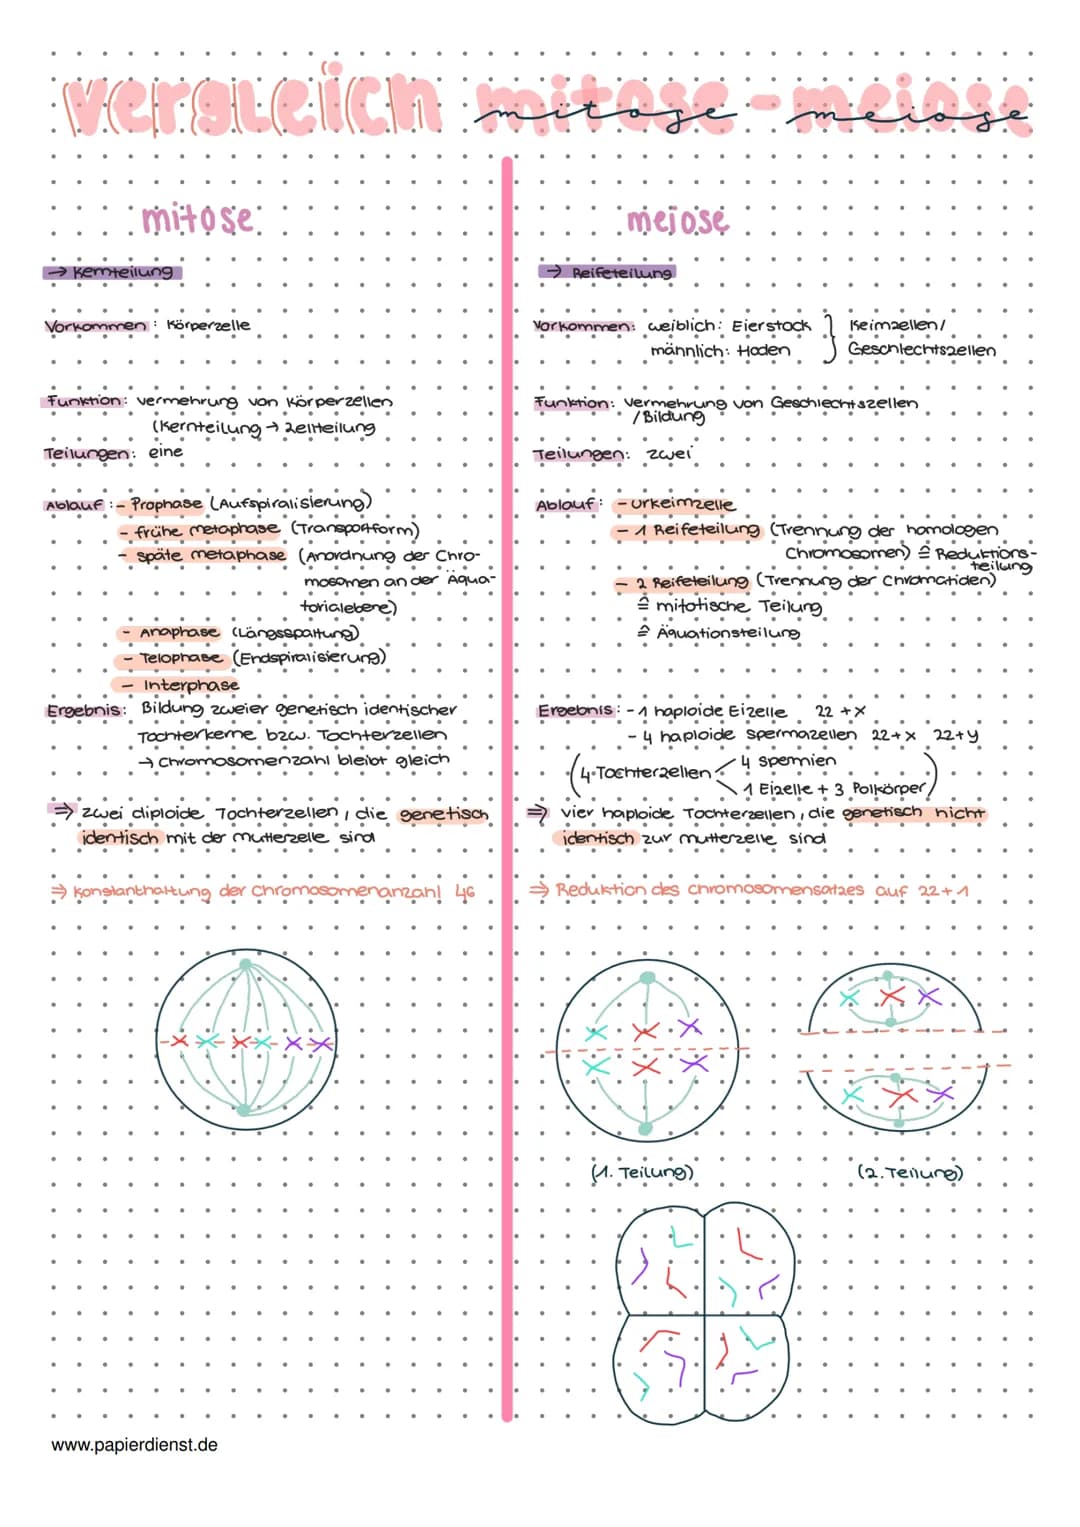 vergleich mitose - meiose
mitose
→ Kernteilung
Vorkommen: Körperzelle
Funktion: Vermehrung von Körperzellen
(Kernteilung → Zellteilung
Teilungen: eine
Ablauf: - Prophase (Aufspiralisierung)
- frühe Metaphase (Transportform)
- späte Metaphase (Anordnung der Chro-
mosomen an der Äqua-
torialebene)
- Anaphase (Längsspaltung)
- Telophase (Endspiralisierung)
- Interphase
Ergebnis: Bildung zweier genetisch identischer
Tochterkerne bzw. Tochterzellen
→ Chromosomenzahl bleibt gleich
⇒ zwei diploide Tochterzellen, die genetisch
identisch mit der Mutterzelle sind
⇒ Konstanthaltung der Chromosomenanzahl 46
meiose
→ Reifeteilung
Vorkommen: weiblich: Eierstock } Keimzellen/
männlich: Hoden Geschlechtszellen
Funktion: Vermehrung von Geschlechtszellen
/Bildung
Teilungen: zwei
Ablauf: - Urkeimzelle
- 1 Reifeteilung (Trennung der homologen
Chromosomen) ≙ Reduktions-
teilung
- 2 Reifeteilung (Trennung der Chromatiden)
≙ mitotische Teilung
≙ Äquationsteilung
Ergebnis: - 1 haploide Eizelle 22 + x
- 4 haploide Spermazellen 22+x 22+y
(4 Tochterzellen < 4 Spermien
1 Eizelle + 3 Polkörper)
⇒ vier haploide Tochterzellen, die genetisch nicht
identisch zur Mutterzelle sind
⇒ Reduktion des Chromosomensatzes auf 22+1
(1. Teilung)
(2. Teilung)
www.papierdienst.de